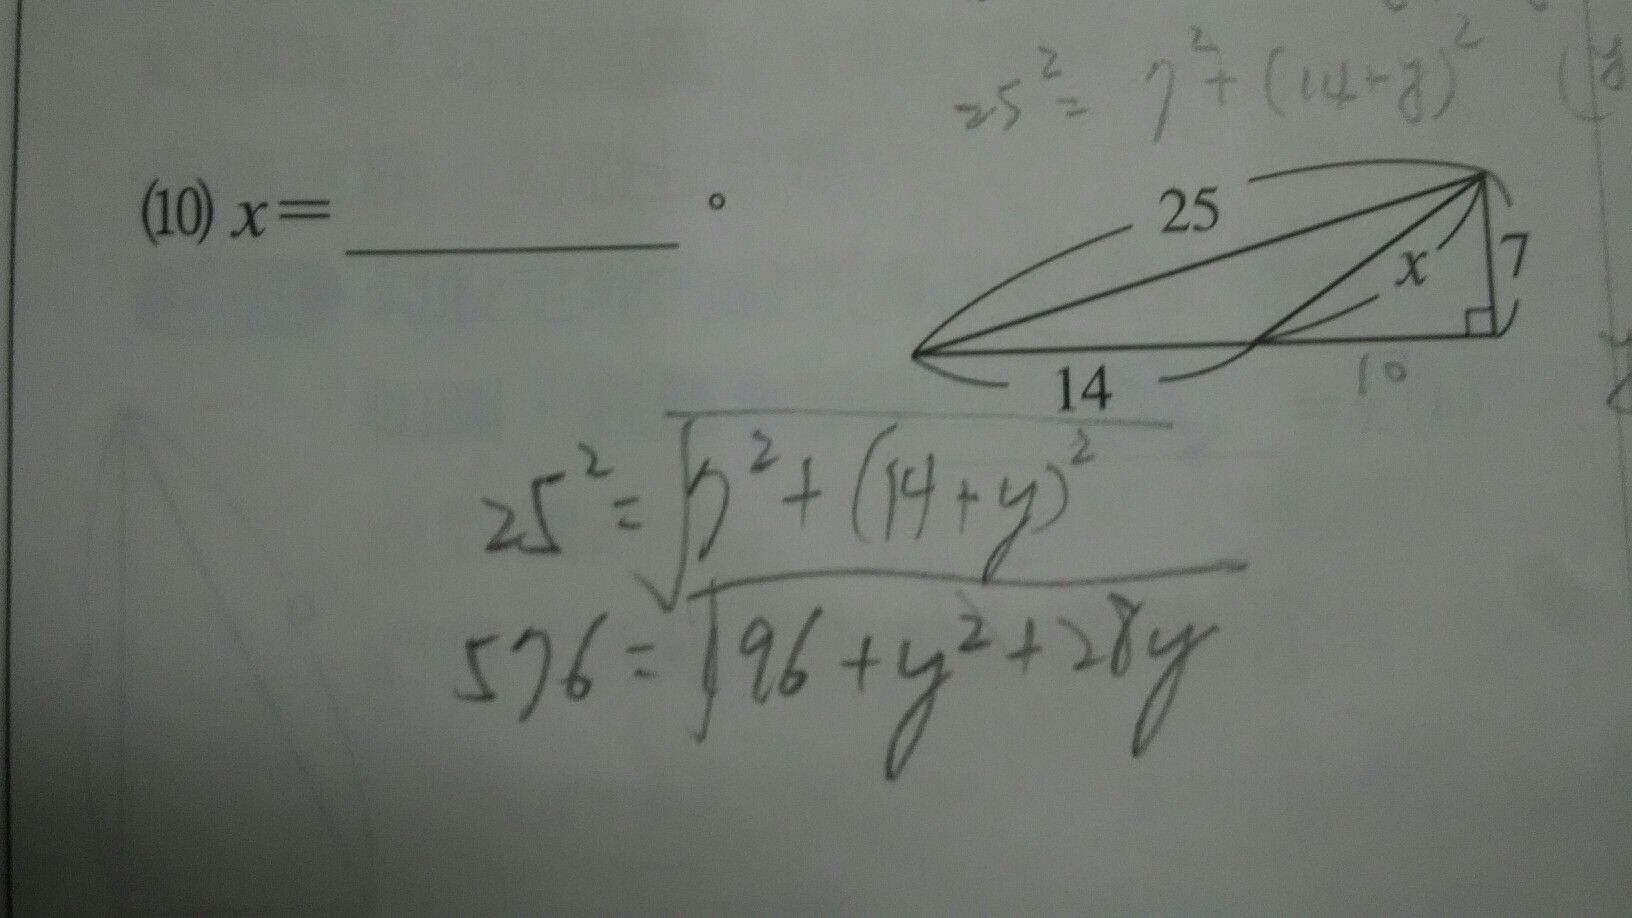 25² = 7² + (14+y)²
(10) x = ________ 。
25
x
7
14
10
25² = √7² + (14+y)²
576 = √196 + y² + 28y